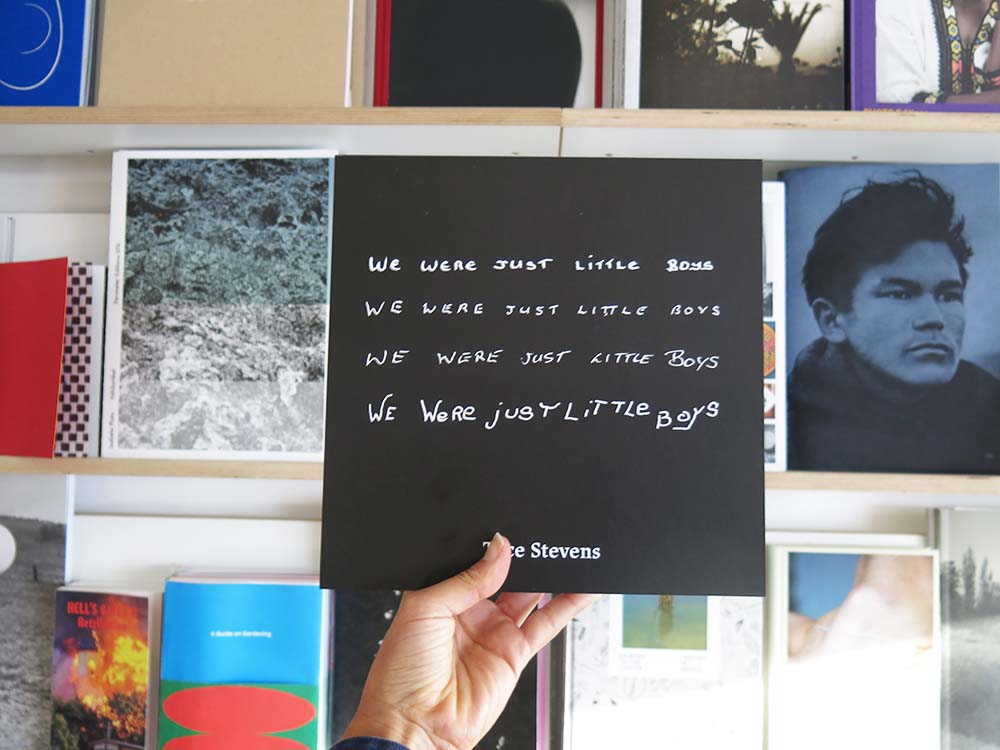 We WERE JUST LiTTLE BOYS
WE WERE JUST LITTLE BOYS
WE WERE JUST LITTLE BOYS
WE WeRe jUST LiTTLe BOYS
Stevens
HELL'S
A Guide on Gardening